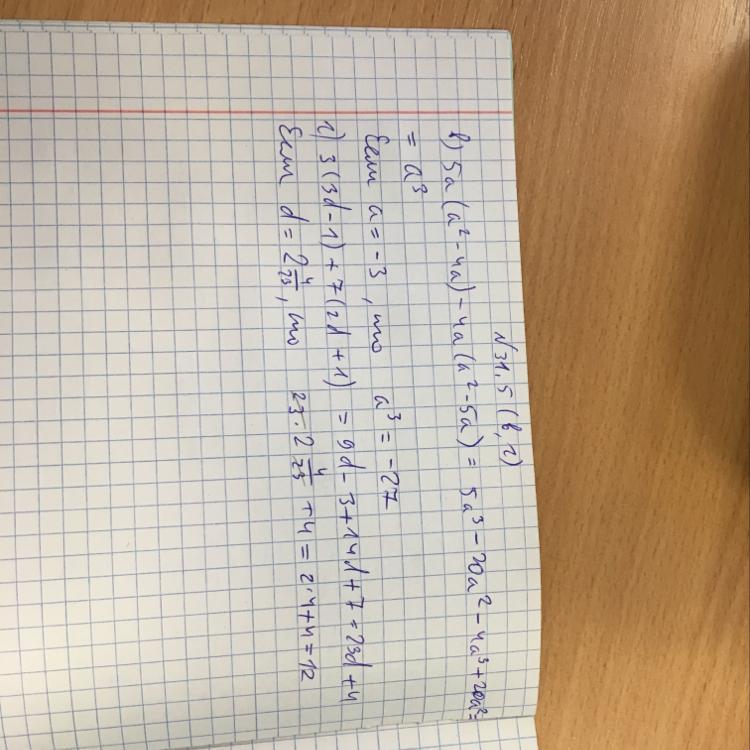 N 31,5 (в,г)
в) 5a(a² - 4a) - 4a(a² - 5a) = 5a³ - 20a² - 4a³ + 20a² =
= a³
Если a = -3, то a³ = -27
г) 3(3d - 1) + 7(2d + 1) = 9d - 3 + 14d + 7 = 23d + 4
Если d = 2 4/23, то 23 · 2 4/23 + 4 = 2·4 + 4 = 12